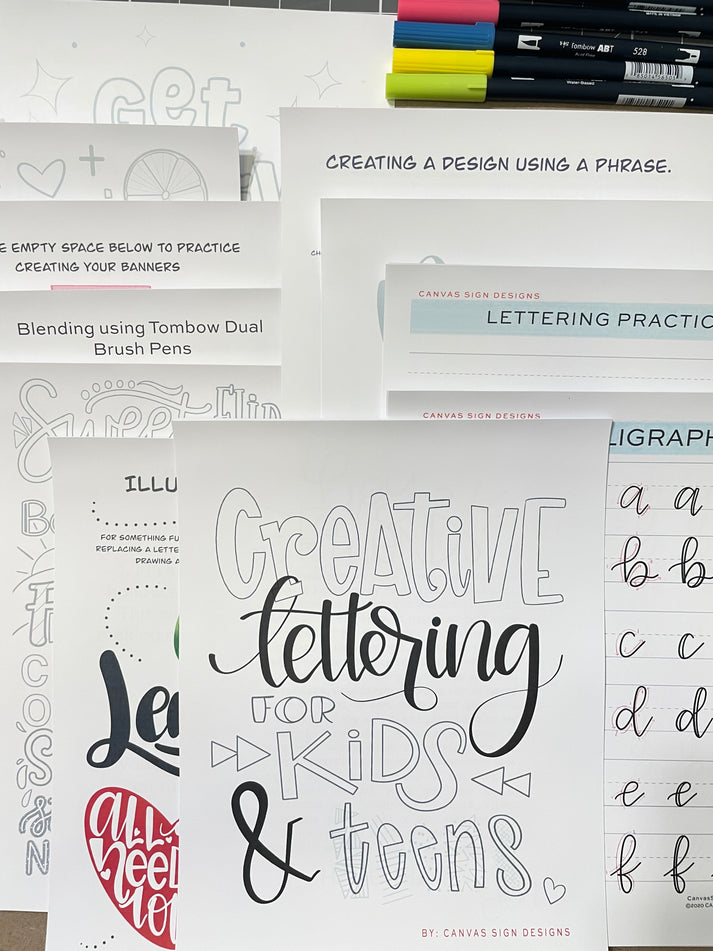 Tombow ABT 528
Get
CREATING A DESIGN USING A PHRASE.
EMPTY SPACE BELOW TO PRACTICE
CREATING YOUR BANNERS
CANVAS SIGN DESIGNS
LETTERING PRACTIC
Blending using Tombow Dual
Brush Pens
Sweet
CANVAS SIGN DESIGNS
LIGRAPH
ILLU
FOR SOMETHING FU
REPLACING A LETTE
DRAWING A
a a
b b
c c
d d
e e
f f
Lea
ALL
need
CReATiVE
lettering
FOR
KiDS
& teens
BY: CANVAS SIGN DESIGNS
©2020 CA